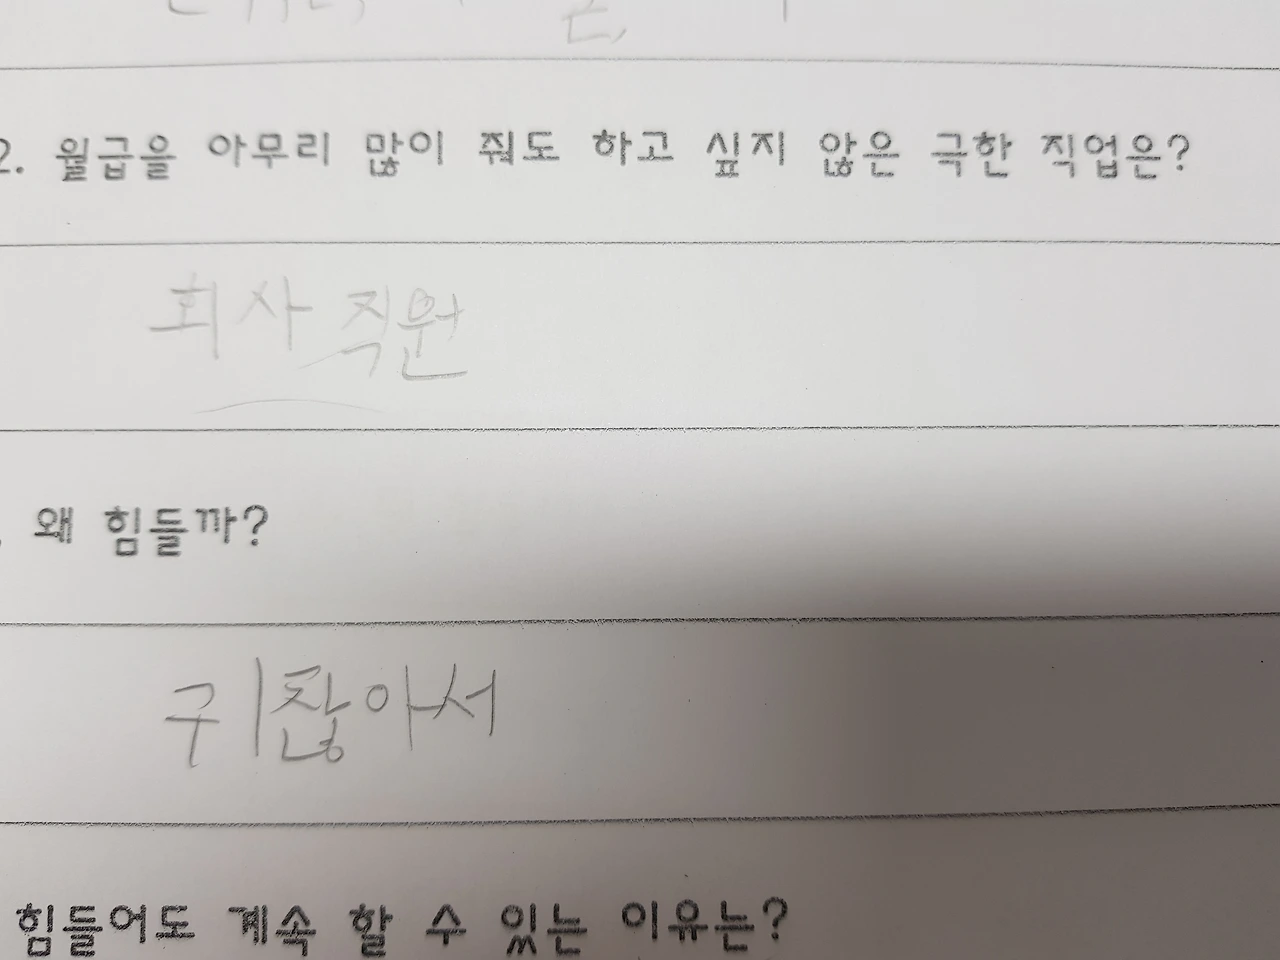 2. 월급을 아무리 많이 줘도 하고 싶지 않은 극한 직업은?
회사 직원
. 왜 힘들까?
귀찮아서
힘들어도 계속 할 수 있는 이유는?